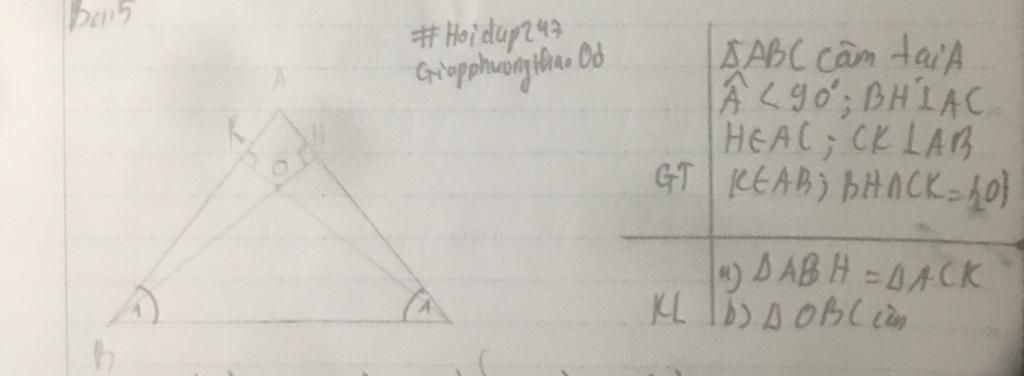 Bài 5
#Hoidap247
Giapphuongthao0d
A
K
H
O
1
1
B
C
GT
ΔABC cân tại A
Â < 90°; BH⊥AC
H∈AC; CK⊥AB
K∈AB; BH∩CK={O}
KL
a) ΔABH = ΔACK
b) ΔOBC cân